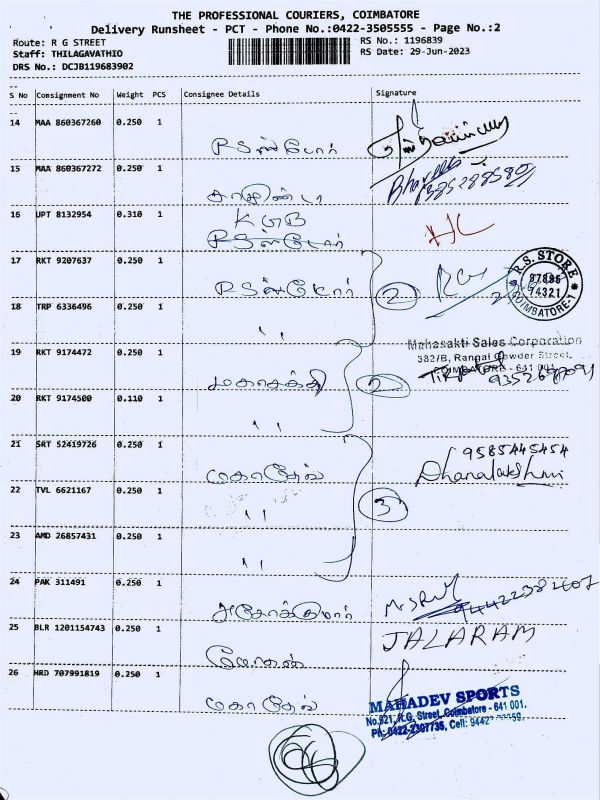 THE PROFESSIONAL COURIERS, COIMBATORE
Delivery Runsheet - PCT - Phone No.:0422-3505555 - Page No.:2
Route: R G STREET
RS No.: 1196839
Staff: THILAGAVATHIO
RS Date: 29-Jun-2023
DRS No.: DCJB119683902
S No Consignment No Weight PCS Consignee Details Signature
14 MAA 860367260 0.250 1
RS ஸ்டோர்
15 MAA 860367272 0.250 1
Bharath
16 UPT 8132954 0.310 1 KGB
RS ஸ்டோர்
17 RKT 9207637 0.250 1
RS ஸ்டோர் 2
R.S. STORE
COIMBATORE-1
18 TRP 6336496 0.250 1
"
19 RKT 9174472 0.250 1
Mahasakti Sales Corporation
382/B, Rangai Gowder Street,
COIMBATORE - 641 001
மகாசக்தி 2
20 RKT 9174500 0.110 1
"
21 SRT 52419726 0.250 1
9585445454
மகாதேவ் Dhanalakshmi
22 TVL 6621167 0.250 1
" 3
23 AMD 26857431 0.250 1
"
24 PAK 311491 0.250 1
அசோக்குமார்
25 BLR 1201154743 0.250 1
JALARAM
மோகன்
26 HRD 707991819 0.250 1
மகாதேவ்
MAHADEV SPORTS
No.521, R.G. Street, Coimbatore - 641 001.
Ph: 0422-2307735, Cell: 9442